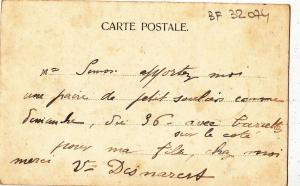 BF 32074
CARTE POSTALE.
Mme Simon apportez moi
une paire de petit souliers comme
dimanche, du 36 avec barrette
sur le coté
pour ma fille, chez moi
merci Ve Desmarest